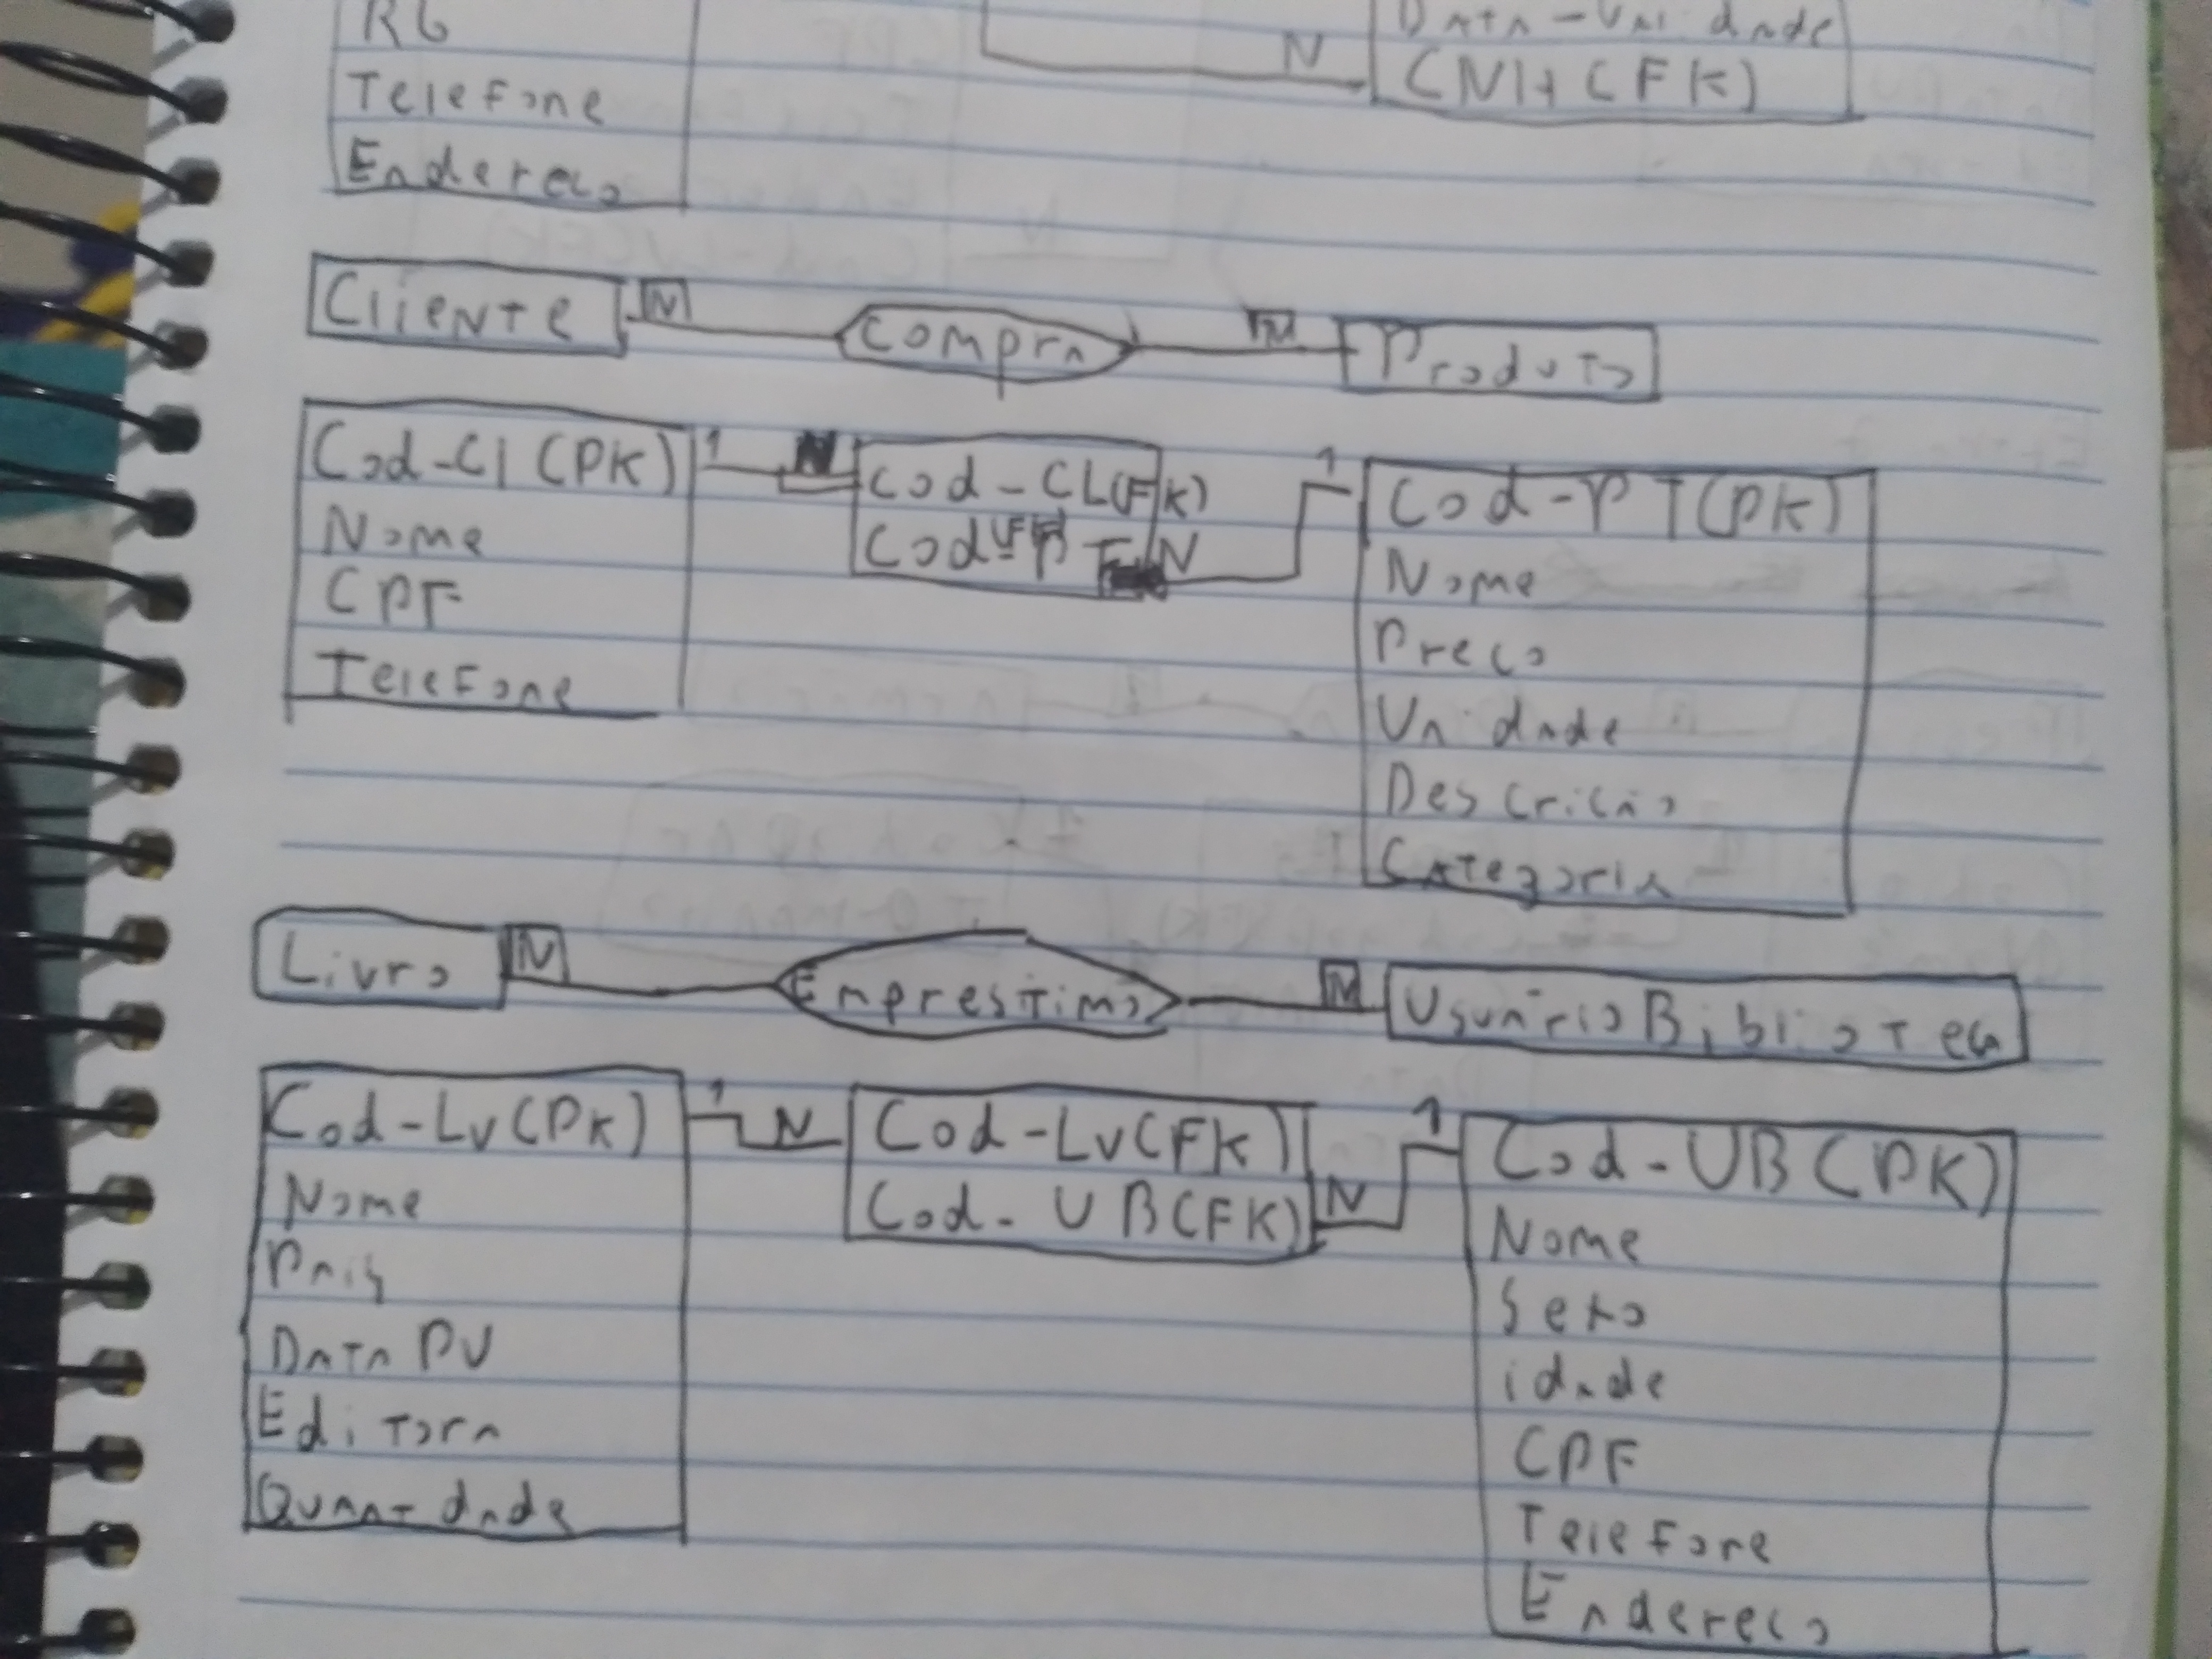 RG
Telefone
Endereco
Data-Validade
N
CNH (FK)
Cliente N Compra M Produto
Cod-Cl (PK)
Nome
CPF
Telefone
1 N
Cod-CL(FK)
Cod-PT N
1
Cod-PT(PK)
Nome
Preco
Unidade
Descricão
Categoria
Livro N Emprestimo M Usuário Biblioteca
Cod-Lv(PK)
Nome
Pais
Data PU
Editora
Quantdade
1 N
Cod-Lv(FK)
Cod-UB(FK) N
1
Cod-UB(PK)
Nome
Sexo
idade
CPF
Telefone
Endereco